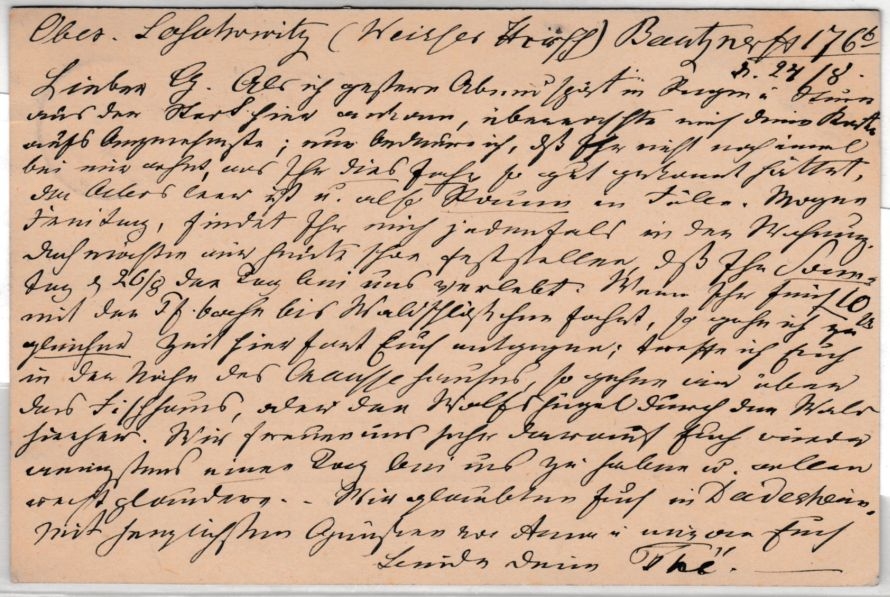 Ober. Loschwitz (Weisser Hirsch) Bautznerstr 176b
d. 24/8.
Lieber G. Als ich gestern Abend spät in Regen u Sturm
aus der Stadt hier ankam, überraschte mich deine Karte
aufs Angenehmste; nur bedaure ich, dß Ihr nicht noch einmal
bei mir wohnt, was Ihr dies Jahr so gut gekonnt hättet,
da Alles leer ist u. also Raum in Fülle. Morgen
Freitag, findet Ihr mich jedenfalls in der Wohnung.
doch möchte ich heute schon feststellen, dß Ihr Sonn-
tag d 26/8 den Tag bei uns verlebt. Wenn Ihr früh 10
mit der Pf. bahn bis Waldschlößchen fahrt, so gehe ich zu
gleicher Zeit hier fort Euch entgegen; treffe ich Euch
in der Nähe des hauses, so gehen wir über
das Fischhaus, oder den Wolfshügel durch den Wald
hierher. Wir freuen uns sehr darauf Euch wieder
wenigstens einen Tag bei uns zu haben u. wollen
recht plaudern. - Wir glaubten Euch in
Mit herzlichsten Grüßen von Anna u mir an Euch
Beide dein Thé.